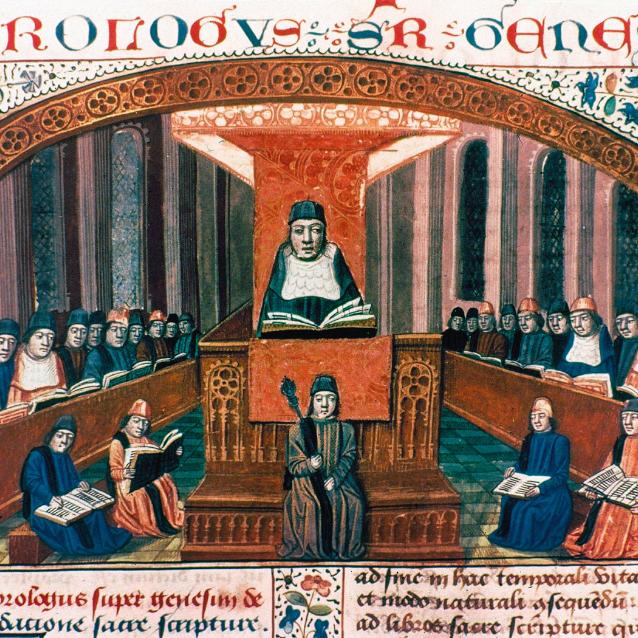 ROLOGVS SR GENE
prologus super genesim de
dacione sacre scripture.
ad sinc in hac temporali vita
et modo naturali
ad libros sacre scripture